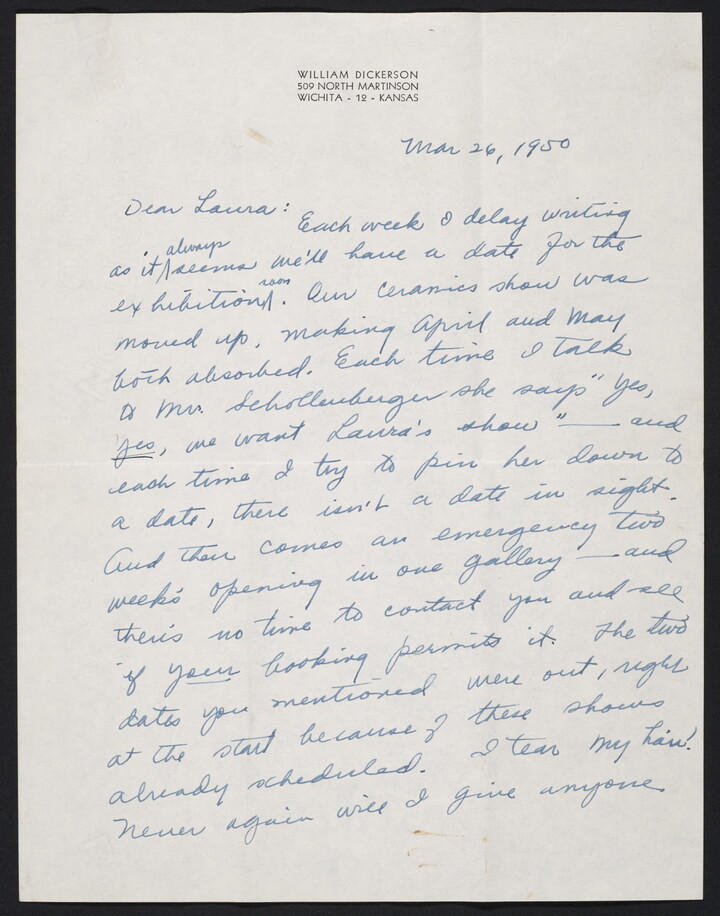 WILLIAM DICKERSON
509 NORTH MARTINSON
WICHITA - 12 - KANSAS
Mar 26, 1950
Dear Laura:
Each week I delay writing
as it always seems we'll have a date for the
exhibition soon. Our ceramics show was
moved up, making April and May
both absorbed. Each time I talk
to Mrs. Schollenberger she says "Yes,
Yes, we want Laura's show" — and
each time I try to pin her down to
a date, there isn't a date in sight.
And then comes an emergency two
week's opening in one gallery — and
there's no time to contact you and see
if your booking permits it. The two
dates you mentioned were out, right
at the start because of these shows
already scheduled. I tear my hair!
Never again will I give anyone